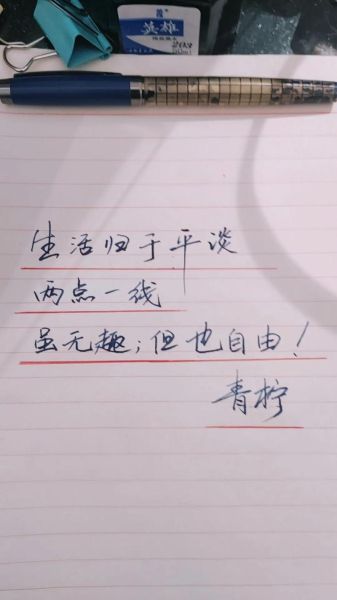 英雄
生活归于平淡
两点一线
虽无趣；但也自由！
青柠